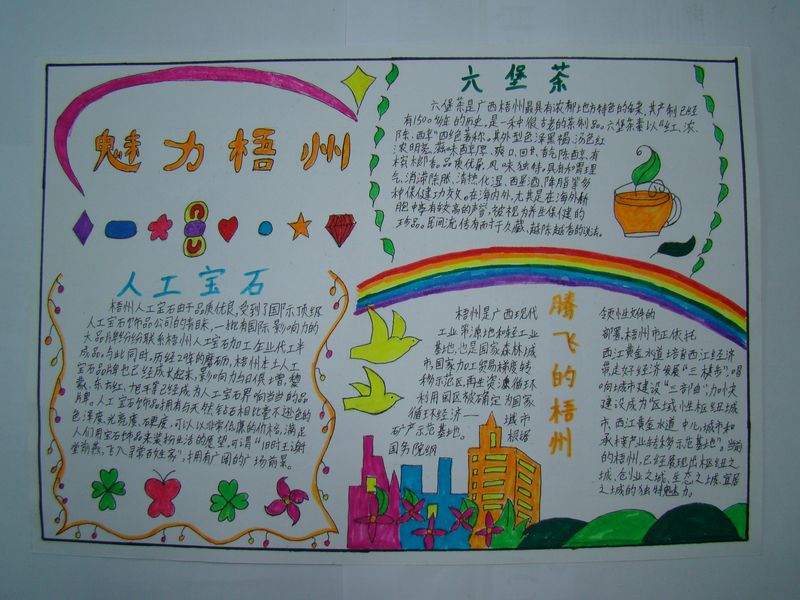 魅力梧州
六堡茶
六堡茶是广西梧州最具有浓郁地方特色的名茶,其产制已经
有1500多年的历史,是一种很古老的茶制品。六堡茶素以“红、浓、
陈、醇”四绝著称,其外型色泽黑褐,汤色红
浓明亮,滋味醇厚、爽口、回甘,香气陈醇,有
槟榔香。品质优良,风味独特,具有和胃理
气、消滞除胀、清热化湿、醒酒、降脂等多
种保健功效。在海内外,尤其是在海外侨
胞中享有较高的声誉,被视为养生保健的
珍品。民间流传有耐于久藏、越陈越香的说法。
人工宝石
梧州人工宝石由于品质优良,受到了国际顶级
人工宝石饰品公司的青睐,一批有国际影响力的
大品牌纷纷联系梧州人工宝石加工企业代工半
成品。与此同时,历经2年的磨砺,梧州本土人工
宝石品牌也已经成长起来,影响力与日俱增,
人工宝石饰品拥有与天然钻石相比毫不逊色的
色泽度、光亮度、硬度,可以以非常低廉的价格,满足
人们用宝石饰品来装扮生活的愿望,可谓“旧时王谢
堂前燕,飞入寻常百姓家”,拥有广阔的广场前景。
腾飞的梧州
梧州是广西现代
工业策源地和轻工业
基地,也是国家森林城
市,国家加工贸易梯度转
移示范区,再生资源循环
利用园区被确定为国家
循环经济——城市
矿产示范基地。根据
国务院纲
领性文件的
部署,梧州市正依托
西江黄金水道培育西江经济
带,走好经济发展“三梯步”,唱
响城市建设“三部曲”,加快
建设成为“区域性枢纽城
市、西江黄金水道中心城市和
承接产业转移示范基地”。当前
的梧州,已经展现出枢纽之
城、创业之城、生态之城、宜居
之城的独特魅力。